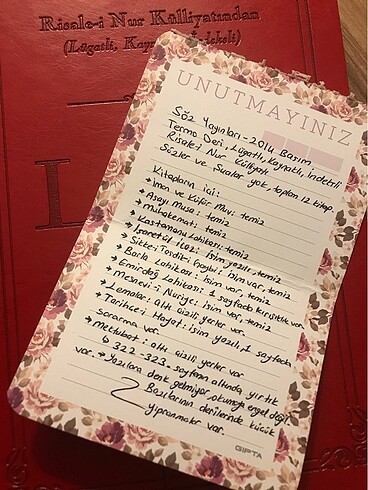 Risale-i Nur Külliyatından
(Lügatli, Kay
deksli)
L
UNUTMAYINIZ
Söz Yayınları - 2014 Basım
Termo Deri, Lügatlı, Kaynaklı, İndeksli
Risale-i Nur Külliyatı
Sözler ve Şualar yok, toplam 12 kitap.
Kitapların içi:
→ İman ve Küfür Muv: temiz
→ Asayı Musa: temiz
→ Muhakemat: temiz
→ Kastamonu Lahikası: temiz
→ İşaratül İcaz: isim yazılı, temiz
→ Sikke-i Tasdik-i Gaybi: isim var, temiz
→ Barla Lahikası: isim var, temiz
→ Emirdağ Lahikası: 1 sayfada kırışıklık var
→ Mesnevi-i Nuriye: isim var, temiz
→ Lemalar: altı çizili yerler var
→ Tarihçe-i Hayat: isim yazılı, 1 sayfada
sararma var.
→ Mektubat: altı çizili yerler var
↳ 322-323. sayfanın altında yırtık
var. → Yazılara denk gelmiyor okumaya engel değil.
Bazılarının derilerinde küçük
yıpranmalar var.
GIPTA